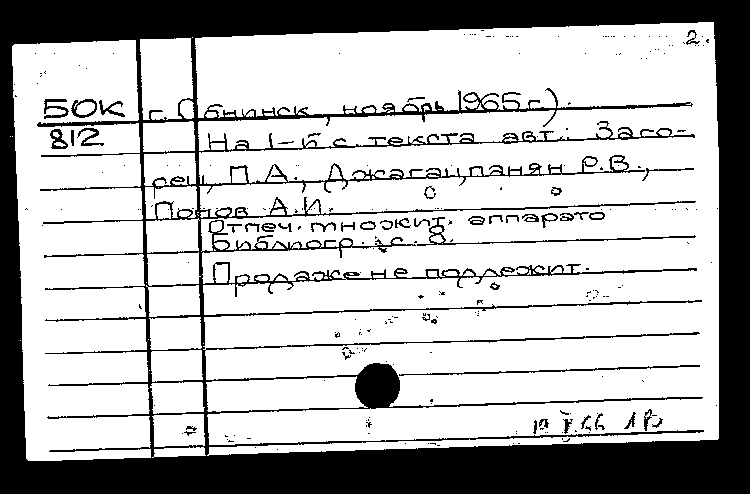 2.
БОК г. Обнинск, ноябрь 1965 г.).
812 На 1-й с. текста авт.: Засо-
рец, П.А., Джагацпанян Р.В.,
Попов А.И.
Отпеч. множит. аппарато
Библиогр. с. 8.
Продаже не подлежит.